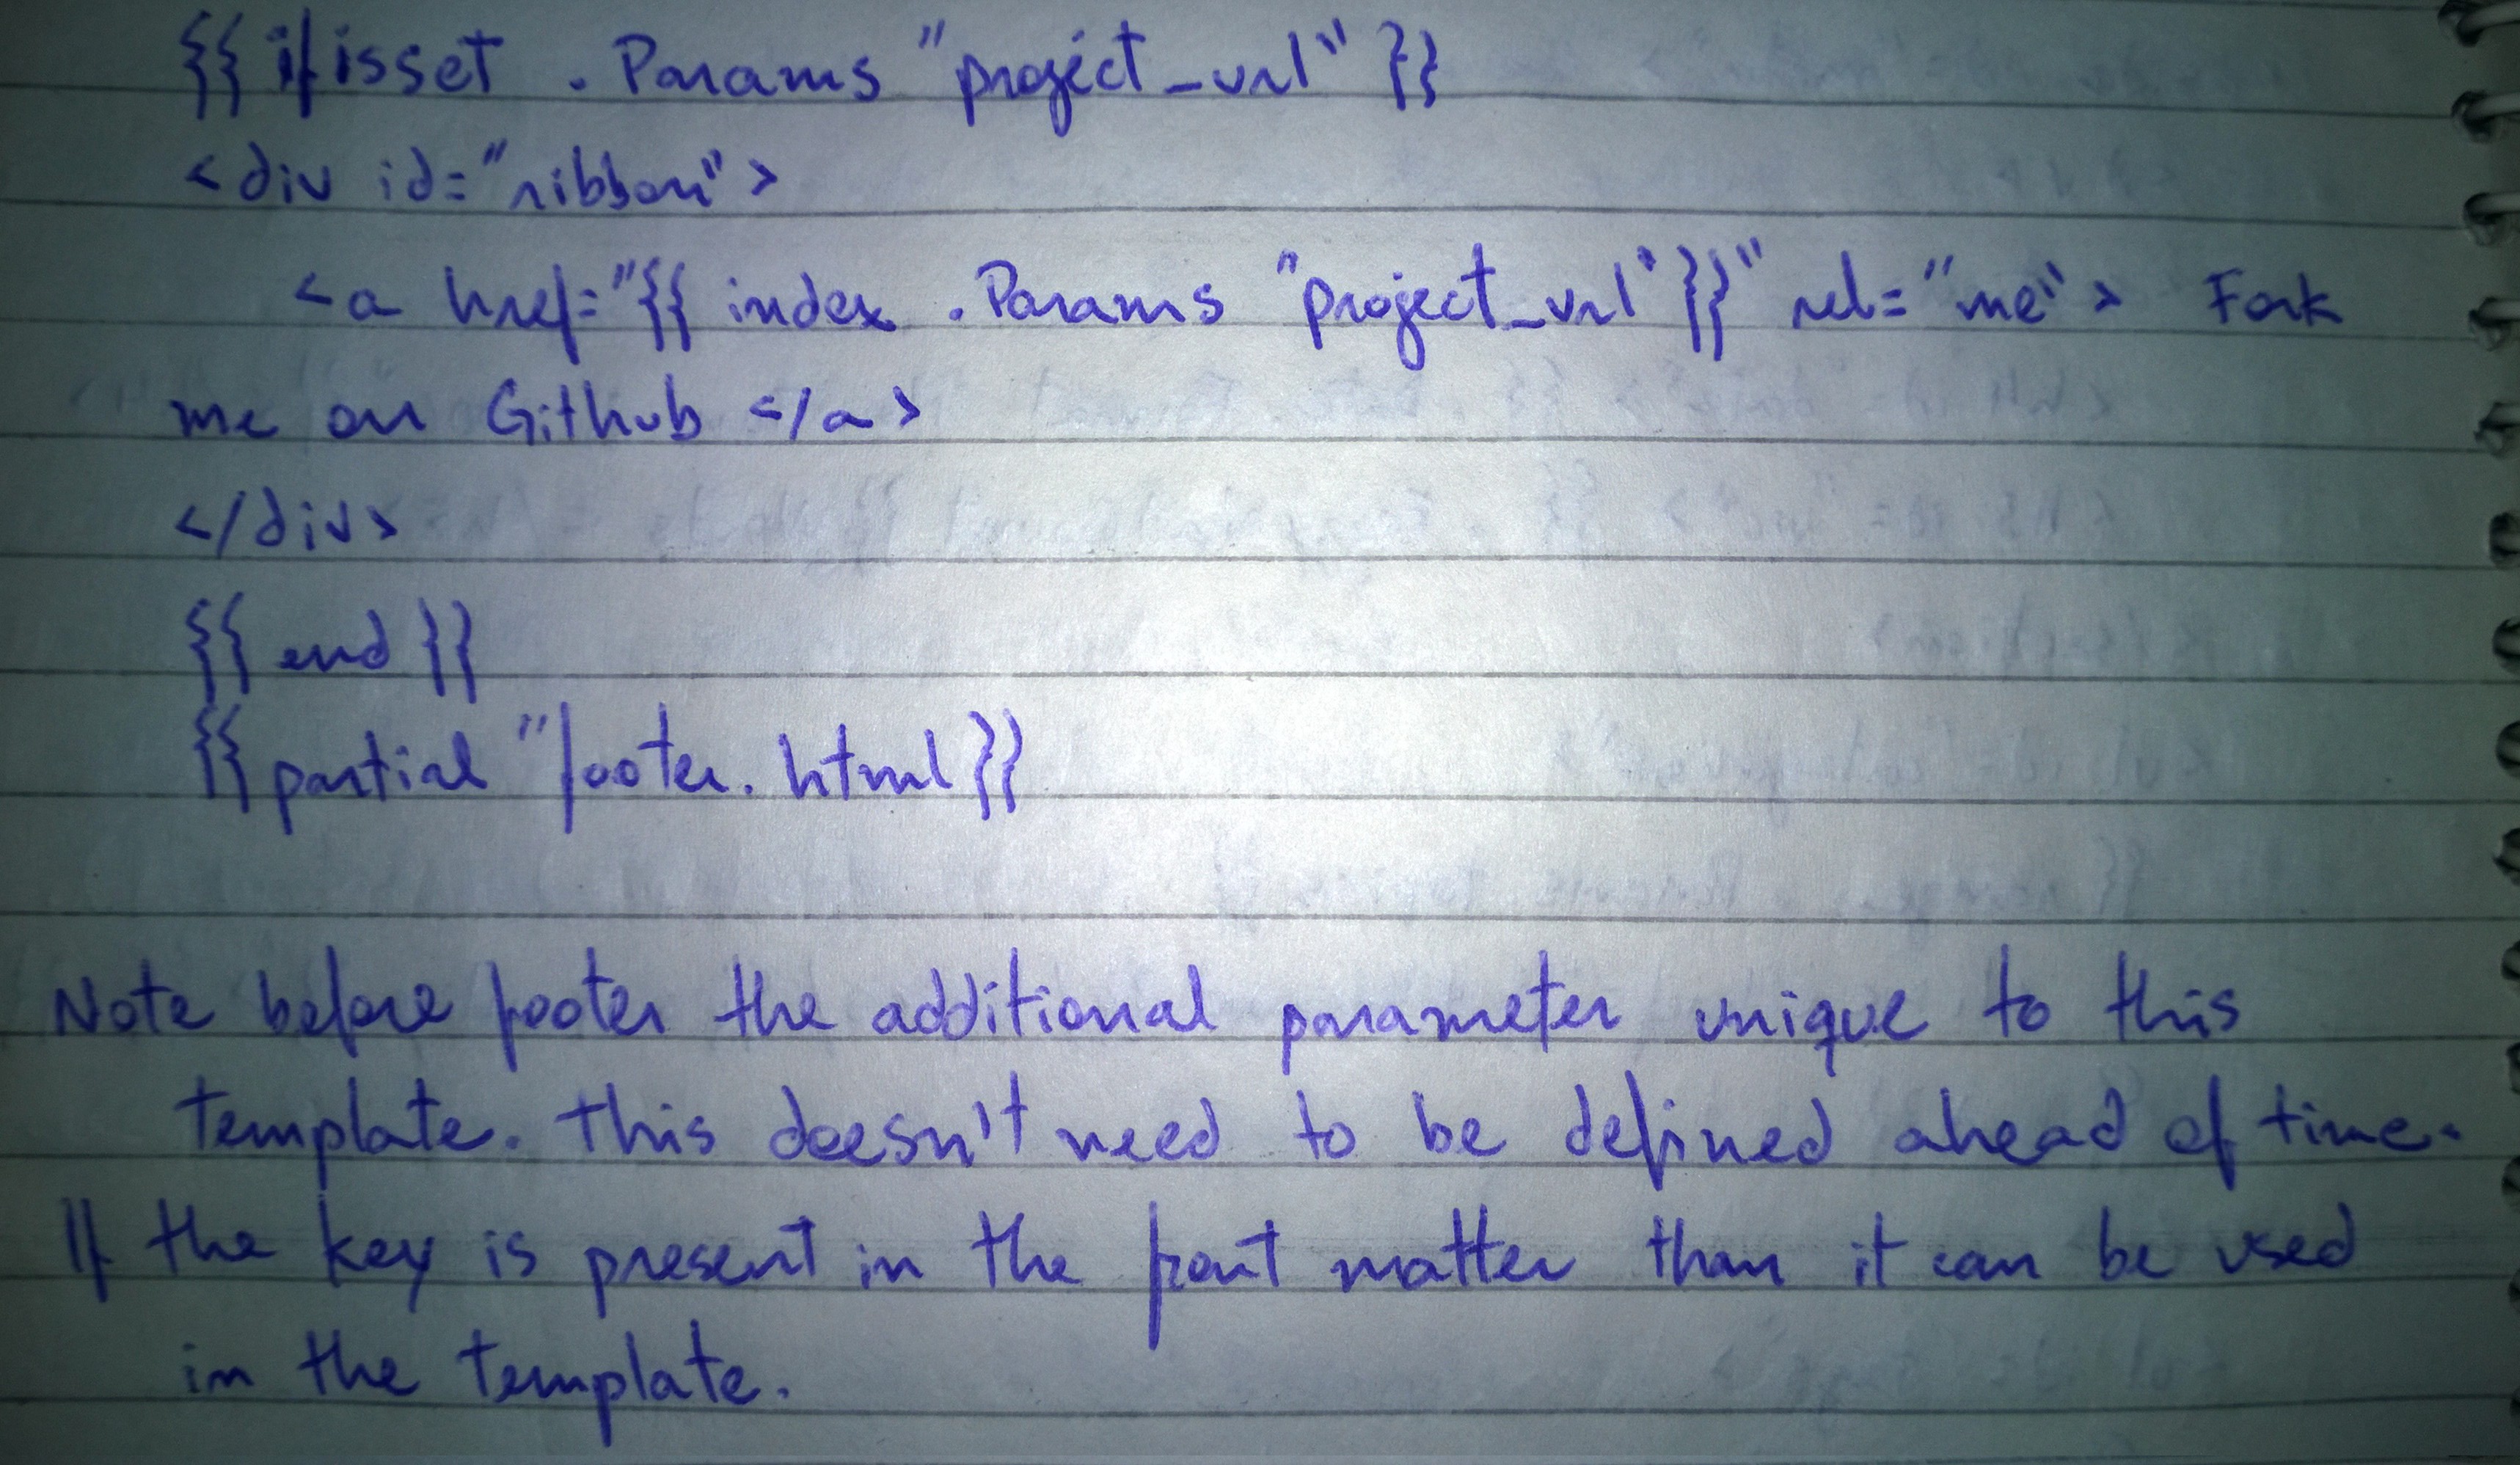 {{if isset .Params "project_url" }}
<div id="ribbon">
<a href="{{ index .Params "project_url" }}" rel="me"> Fork
me on GitHub </a>
</div>
{{ end }}
{{ partial "footer.html }}
Note before footer the additional parameter unique to this
template. this doesn't need to be defined ahead of time.
If the key is present in the font matter than it can be used
in the template.